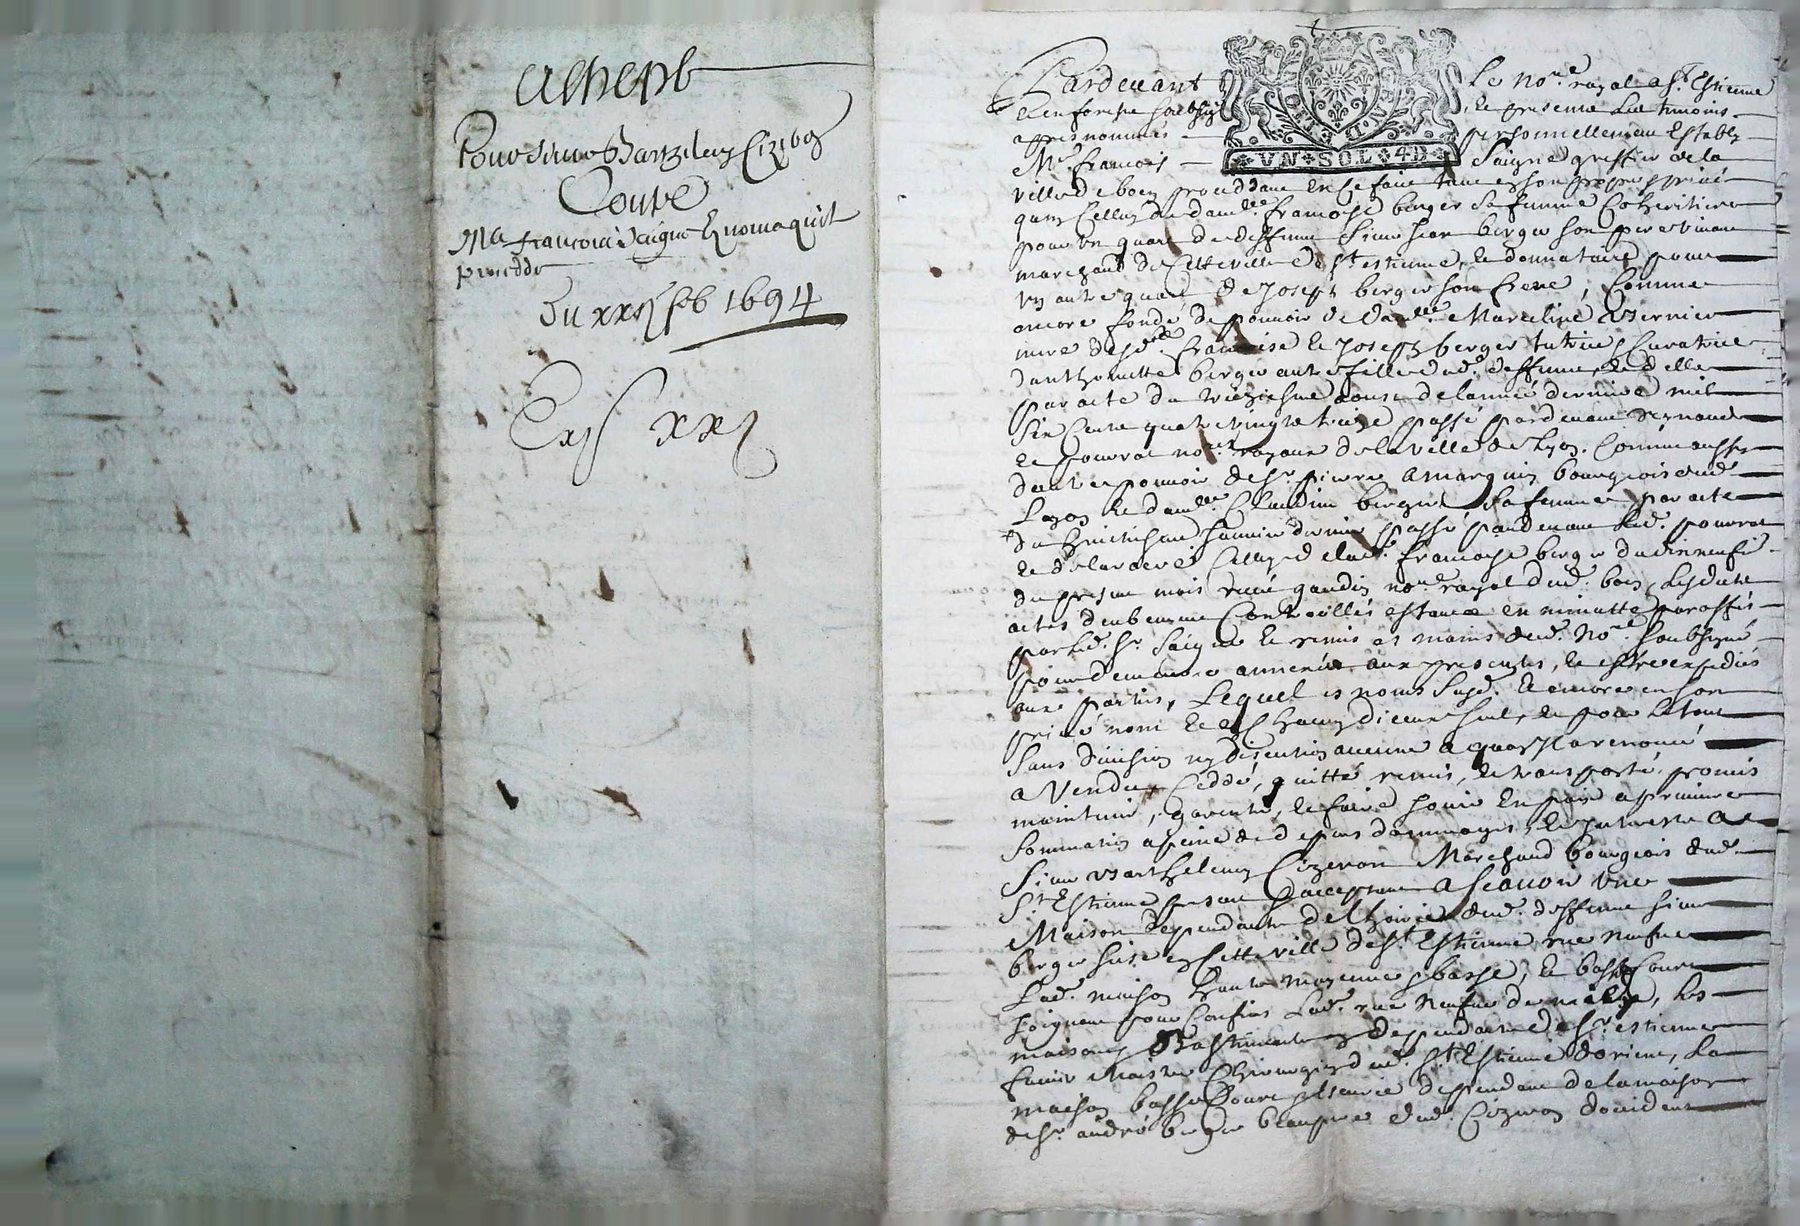 Achept
Pour Sieur Barthelemy Cizeron
Contre
Me francois Saigne En nom quil
procedde
Du xxij feb 1694
Ex xxj
Pardevant Le nore royal a St Estienne
En forestz soubsigné, En presence des tesmoins
apres nommés personnellement Establi
Me francois Saigne greffier de la
ville de boen proceddant En ce faict tant en son propre et privé
qu'en celluy de damlle francoise berger sa femme Coheritiere
pour un quart de deffunt Sieur Jean berger son pere vivant
marchand de Cette ville de St estienne, Et donnataire pour
un autre quart de Joseph berger son frere, Comme
encore fondé de pouvoir de damlle Marceline Vernier
mere desdts francoise Et Joseph berger tutrice Curatrice
d'anthoinette berger autre fille dudt deffunt, Et d'elle
par acte du treiziesme aoust de lannée derniere mil
Six Cents quatre vingt treize passé pardevant Reynaud
Et pourrat nores royaux de la ville de Lyon. Comme aussy
d'autre pouvoir de Sr pierre amarquis bourgeois dudt
Lyon Et damlle Claudine berger Sa femme par acte
du huictiesme Janvier dernier passé pardevant Led. pourrat
Et de lavocé Celluy de lade francoise berger du dixneufe
du present mois receu gaudin nore royal dud. boen, Lesdits
actes deubement Controollés estants en minutte paraffés
par Led. Sr Saigne Et remis es mains dud. Nore soubsigné
pour demeurer annexés aux presentes, Et estre expediés
aux parties, Lequel es noms Susd. Et encore en son
privé nom Et en Chacun d'iceux seul, Et pour Le tout
Sans division ny discution aucune a quoy Il a renoncé
a Vendu, Ceddé, quitté remis, Et transporté, promis
maintenir, garentir, Et faire Jouir En paix a premiere
Sommation a peine de despens dommages, Et Interests a
Sieur Barthelemy Cizeron Marchand bourgeois dud.
St Estienne present Et acceptant a Scavoir Une
Maison dependante de lhoirie dud. deffunt Sieur
berger Size en Cette ville de St Estienne rue Neufve
Lad. maison haute moyenne et basse, Et basse Cour
Joignant pour Confins Lad. rue Neufve de matin, Les
maisons Et bastiments dependants de Sr estienne
Maistre Chirurgien dud. St Estienne de orient, La
maison basse Cour et Escurie dependant de la maison
de Sr andré berger beaupere dud. Cizeron doccident
VN SOL 4D